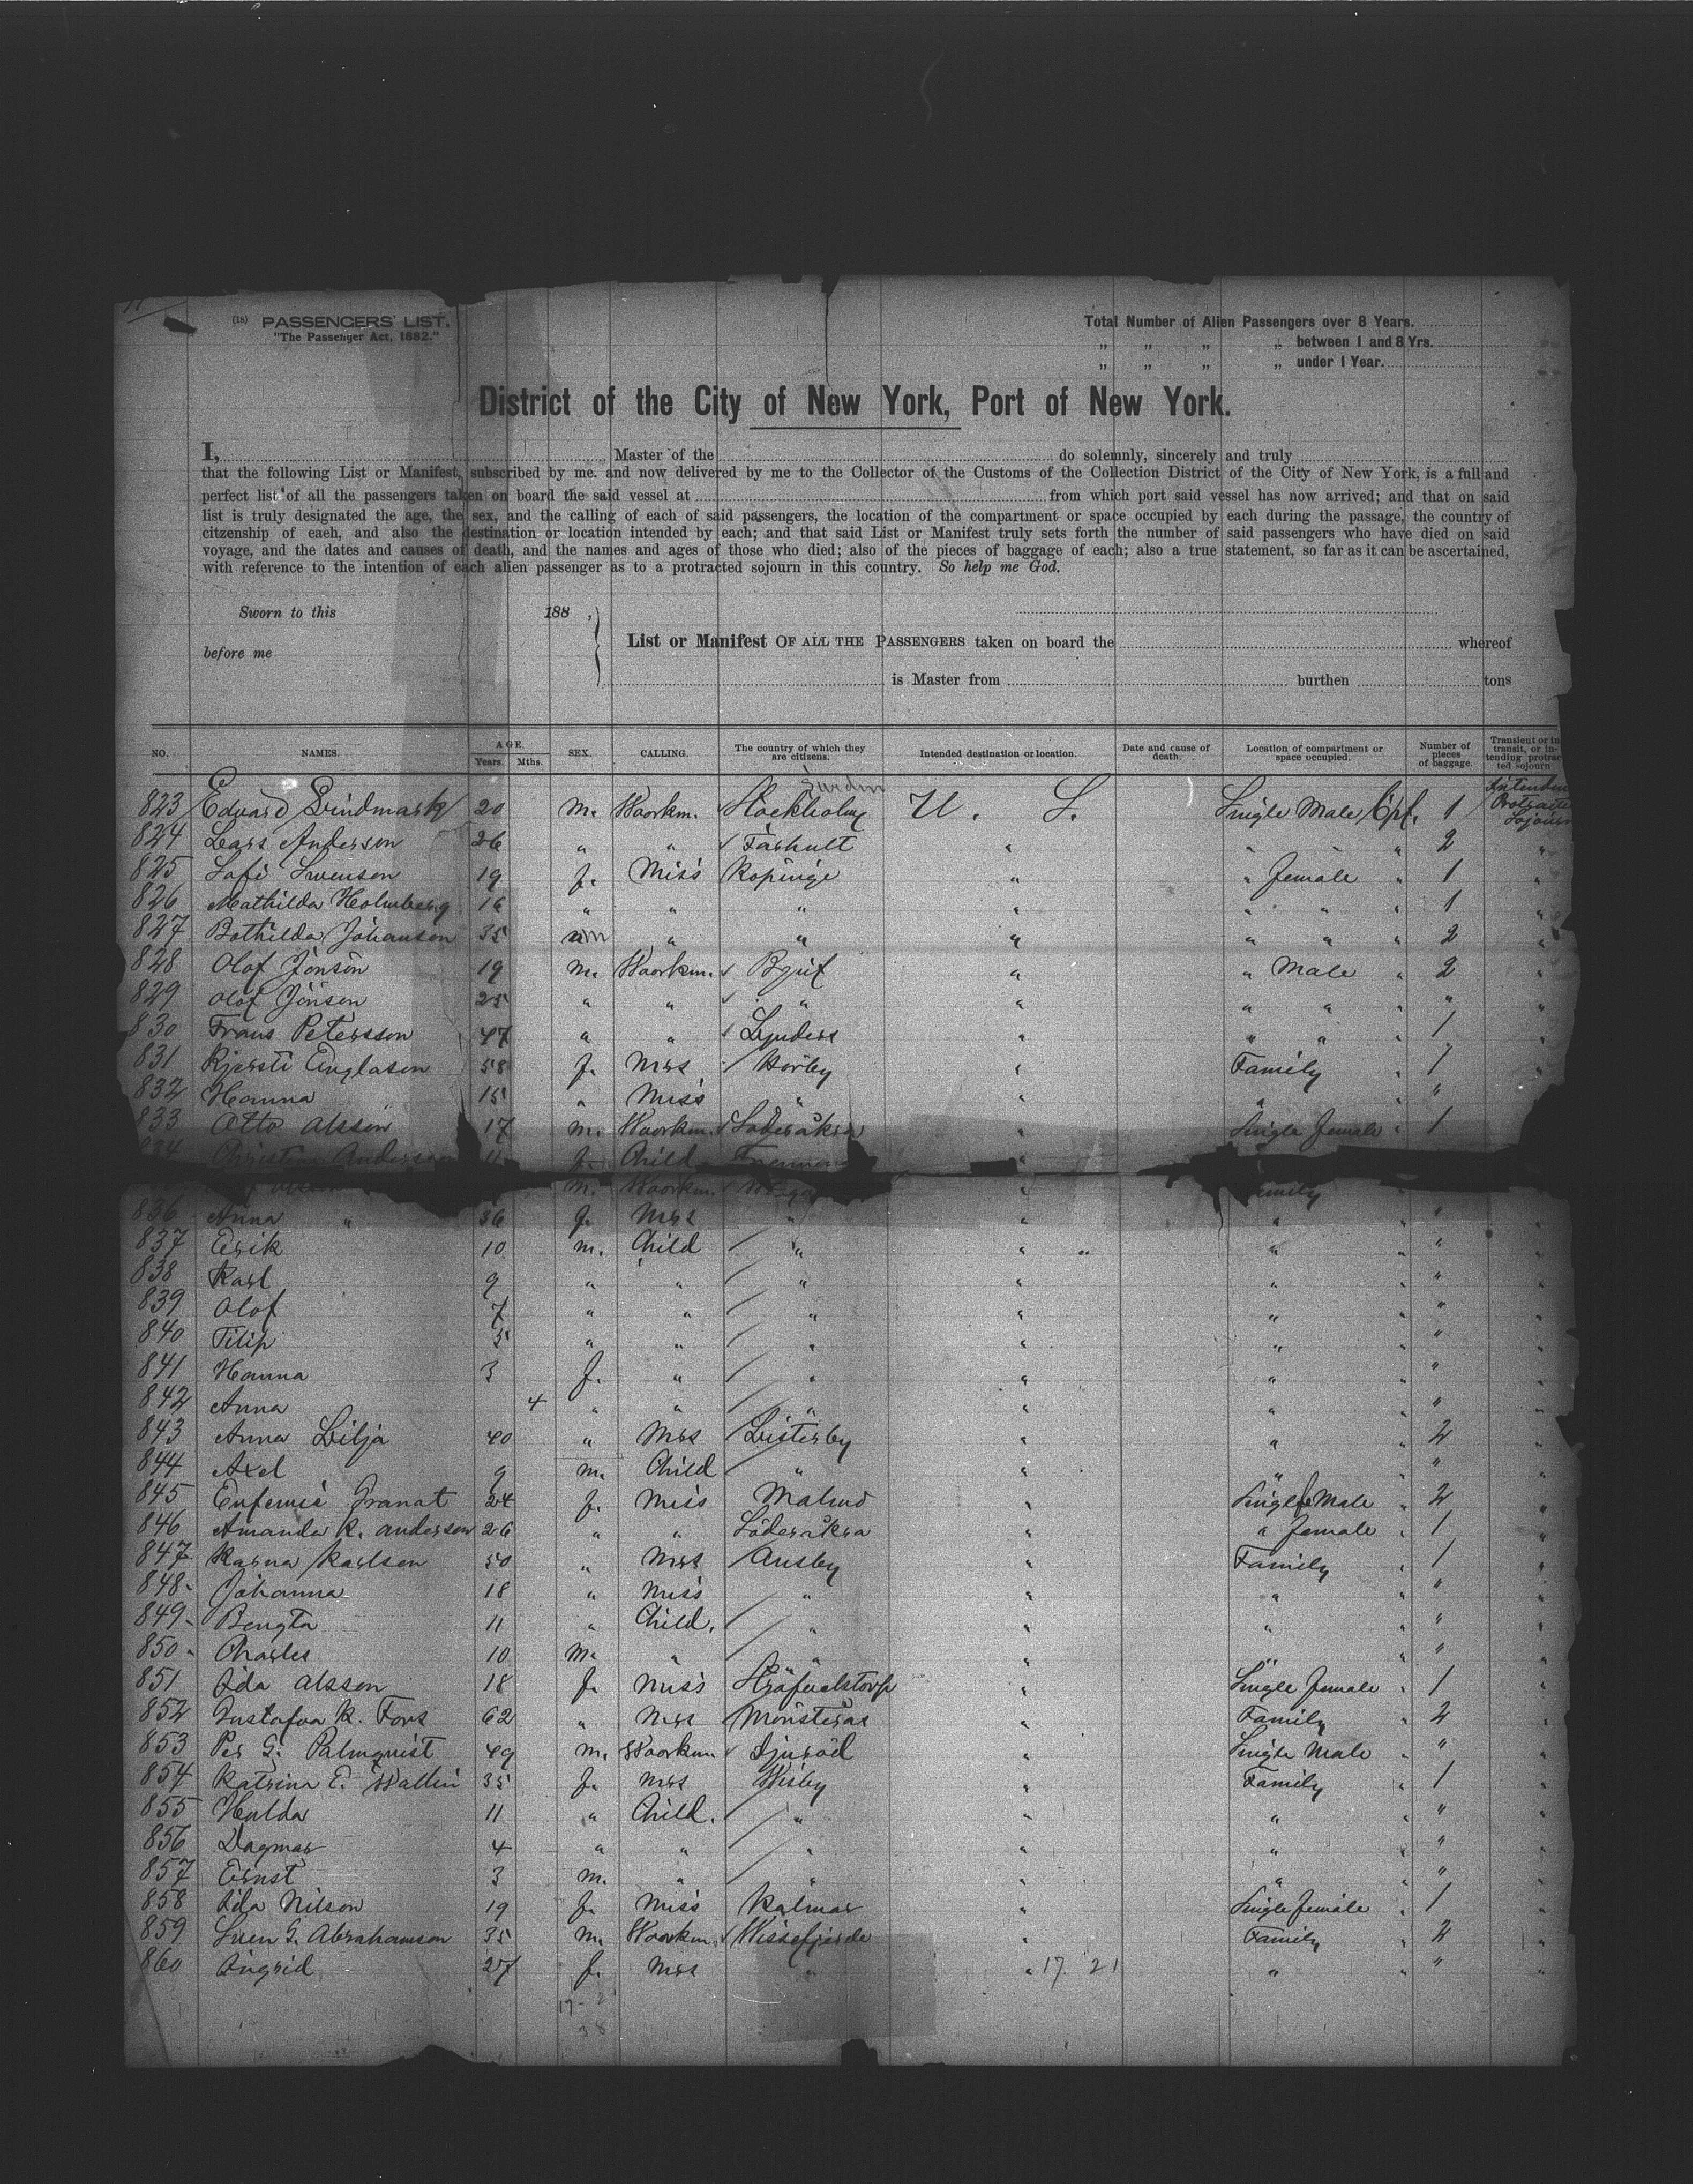 (18) PASSENGERS' LIST.
"The Passenger Act, 1882."
Total Number of Alien Passengers over 8 Years.
„ „ „ „ between 1 and 8 Yrs.
„ „ „ „ under 1 Year.
District of the City of New York, Port of New York.
I, Master of the do solemnly, sincerely and truly
that the following List or Manifest, subscribed by me. and now delivered by me to the Collector of the Customs of the Collection District of the City of New York, is a full and
perfect list of all the passengers taken on board the said vessel at from which port said vessel has now arrived; and that on said
list is truly designated the age, the sex, and the calling of each of said passengers, the location of the compartment or space occupied by each during the passage, the country of
citzenship of eaeh, and also the destination or location intended by each; and that said List or Manifest truly sets forth the number of said passengers who have died on said
voyage, and the dates and causes of death, and the names and ages of those who died; also of the pieces of baggage of each; also a true statement, so far as it can be ascertained,
with reference to the intention of each alien passenger as to a protracted sojourn in this country. So help me God.
Sworn to this 188 ,
before me
List or Manifest OF ALL THE PASSENGERS taken on board the whereof
is Master from burthen tons
NO. NAMES. AGE. Years. Mths. SEX. CALLING. The country of which they are citizens. Intended destination or location. Date and cause of death. Location of compartment or space occupied. Number of pieces of baggage. Transient or in transit, or intending protracted sojourn
Sweden
823 Edvard Lindmark 20 m. Woorkm. Stockholm U. S. Single Male Cpt. 1
824 Lars Anderson 26 " " Farhult " " " " 2 "
825 Sofi Swenson 19 f. Miss Kopinge " " female " 1 "
826 Mathilda Holmberg 16 " " " " " " " 1 "
827 Bothilda Johanson 35 " " " " " " 2 "
828 Olof Jonson 19 m. Woorkm. Bjuf " " Male " 2 "
829 Olof Jönson 25 " " " " " " " "
830 Frans Petersson 47 " " " " " 1 "
831 Kjersti Englasen 58 f. Mrs Hörby " Family " 1 "
832 Hanna 15 " Miss " " " "
833 Otto Olsson 17 m. Woorkm. Söderåkra " Single female " 1
834 Christina Anderson 11 f. Child
m. Woorkm. " Family
836 Anna " 36 f. Mrs " " " " " "
837 Erik 10 m. Child " " " " " "
838 Karl 9 " " " " " " " "
839 Olof 7 " " " " " " " "
840 Filip 5 " " " " " " " "
841 Hanna 3 f. " " " " " " "
842 Anna 4 " " " " " " " "
843 Anna Lilja 40 " Mrs Listerby " " " 2 "
844 Axel 9 m. Child " " " " " "
845 Eufemie Granat 24 f. Miss Malmö " Single feMale " 2 "
846 Amanda K. Anderson 26 " " Söderåkra " " female " 1 "
847 Karna Karlson 50 " Mrs Ausby " Family " 1 "
848 Johanna 18 " Miss " " " " " "
849 Bengta 11 " Child. " " " " " "
850 Charles 10 m. " " " " " " "
851 Ida Olsson 18 f. Miss " Single female " 1 "
852 Gustafva K. Fors 62 " Mrs Mönsterås " Family " 2 "
853 Per G. Palmquist 49 m. Woorkm. Djuröd " Single Male " " "
854 Katrina E. Wallin 35 f. Mrs Wisby " Family " 1 "
855 Hulda 11 " Child. " " " " " "
856 Dagmar 4 " " " " " " " "
857 Ernst 3 m. " " " " " " "
858 Ida Nilson 19 f. Miss Kalmar " Single female " 1 "
859 Sven G. Abrahamson 35 m. Woorkm. Wissefjerde " Family " 2 "
860 Ingrid 27 f. Mrs " " 17. 21 " " " "